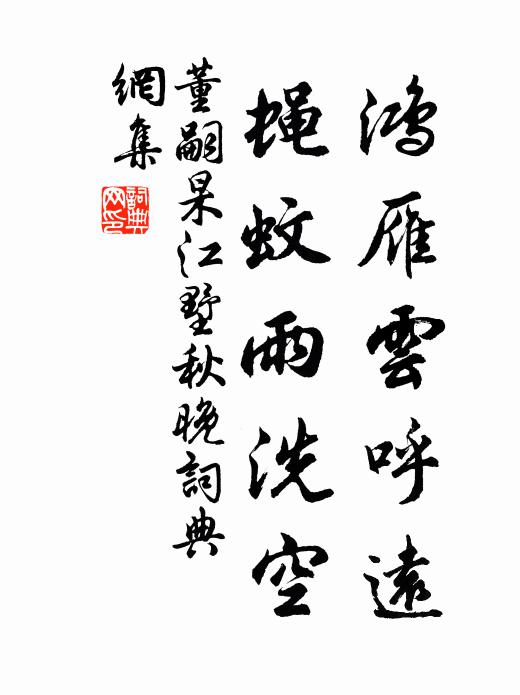 鸿雁雲呼遠
蝇蚊雨洗空
董嗣杲江墅秋晚詞典
網集
詞典
网印